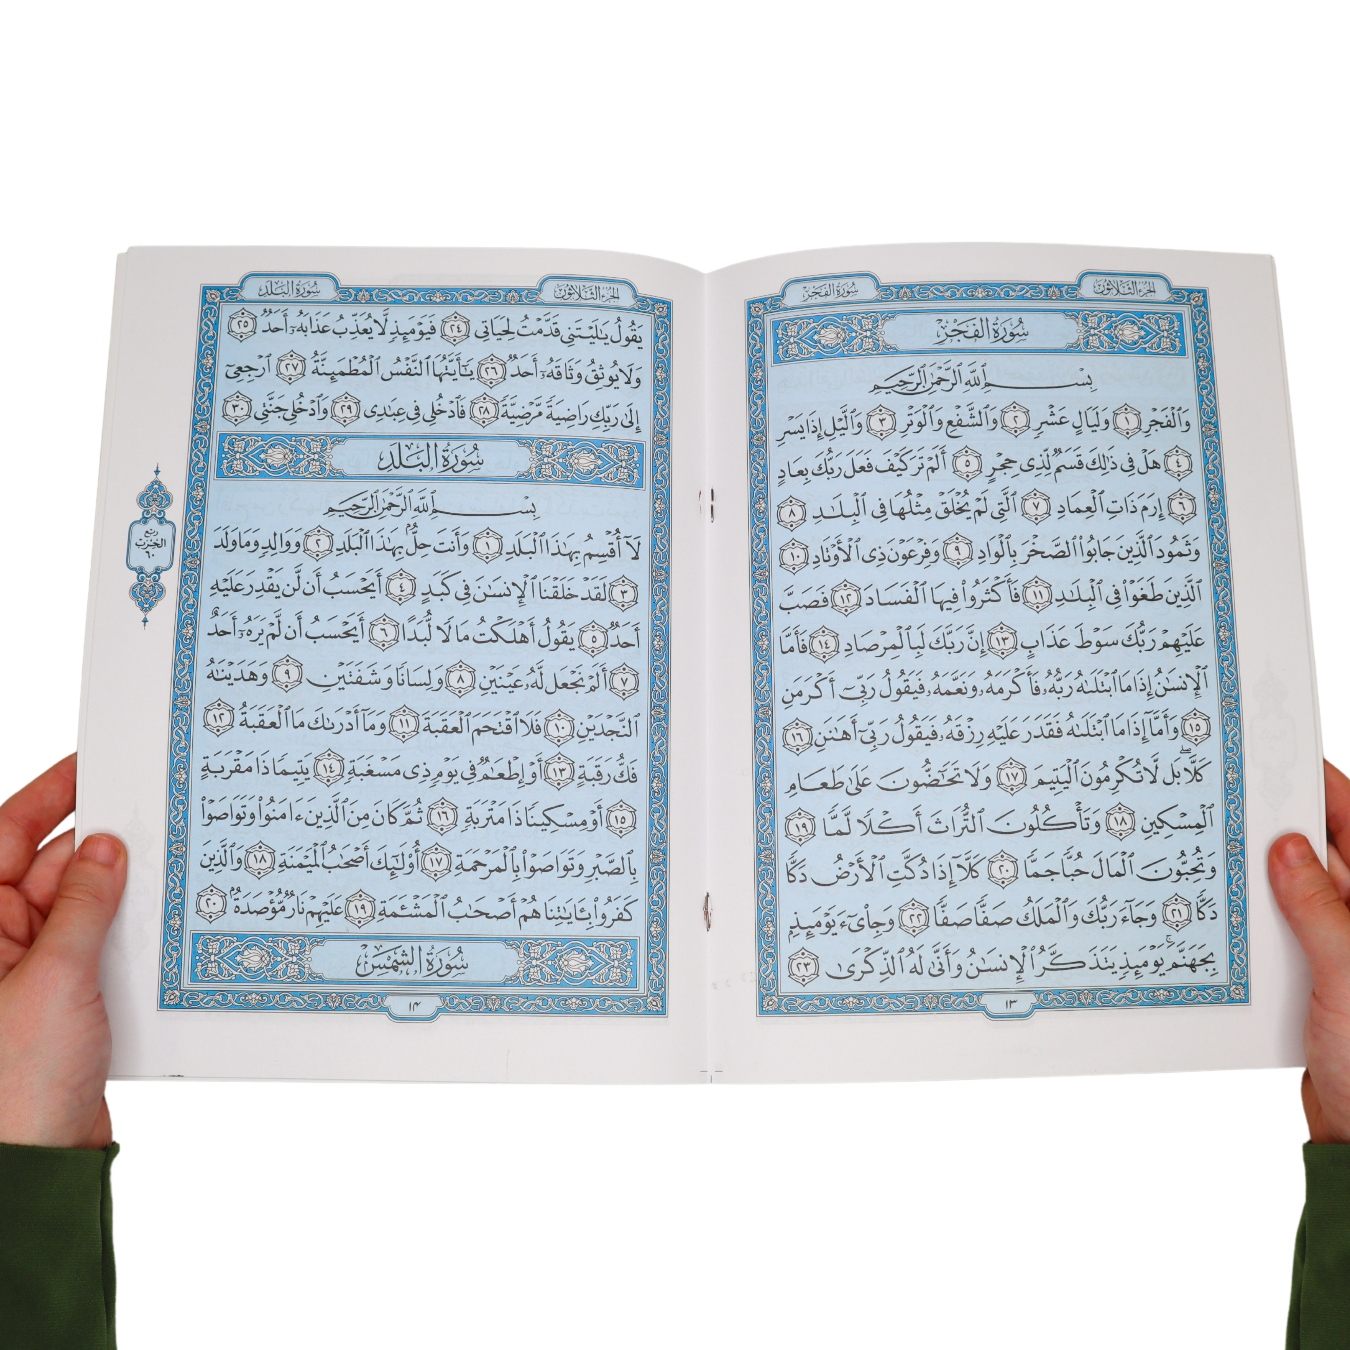 الجزء الثلاثون
سورة الفجر
سُورَةُ الفَجْرِ
بِسْمِ ٱللَّهِ ٱلرَّحْمَٰنِ ٱلرَّحِيمِ
وَٱلْفَجْرِ ١ وَلَيَالٍ عَشْرٍ ٢ وَٱلشَّفْعِ وَٱلْوَتْرِ ٣ وَٱلَّيْلِ إِذَا يَسْرِ
٤ هَلْ فِى ذَٰلِكَ قَسَمٌ لِّذِى حِجْرٍ ٥ أَلَمْ تَرَ كَيْفَ فَعَلَ رَبُّكَ بِعَادٍ
٦ إِرَمَ ذَاتِ ٱلْعِمَادِ ٧ ٱلَّتِى لَمْ يُخْلَقْ مِثْلُهَا فِى ٱلْبِلَٰدِ ٨
وَثَمُودَ ٱلَّذِينَ جَابُوا۟ ٱلصَّخْرَ بِٱلْوَادِ ٩ وَفِرْعَوْنَ ذِى ٱلْأَوْتَادِ ١٠
ٱلَّذِينَ طَغَوْا۟ فِى ٱلْبِلَٰدِ ١١ فَأَكْثَرُوا۟ فِيهَا ٱلْفَسَادَ ١٢ فَصَبَّ
عَلَيْهِمْ رَبُّكَ سَوْطَ عَذَابٍ ١٣ إِنَّ رَبَّكَ لَبِٱلْمِرْصَادِ ١٤ فَأَمَّا
ٱلْإِنسَٰنُ إِذَا مَا ٱبْتَلَىٰهُ رَبُّهُۥ فَأَكْرَمَهُۥ وَنَعَّمَهُۥ فَيَقُولُ رَبِّىٓ أَكْرَمَنِ
١٥ وَأَمَّآ إِذَا مَا ٱبْتَلَىٰهُ فَقَدَرَ عَلَيْهِ رِزْقَهُۥ فَيَقُولُ رَبِّىٓ أَهَٰنَنِ ١٦
كَلَّا ۖ بَل لَّا تُكْرِمُونَ ٱلْيَتِيمَ ١٧ وَلَا تَحَٰٓضُّونَ عَلَىٰ طَعَامِ
ٱلْمِسْكِينِ ١٨ وَتَأْكُلُونَ ٱلتُّرَاثَ أَكْلًا لَّمًّا ١٩
وَتُحِبُّونَ ٱلْمَالَ حُبًّا جَمًّا ٢٠ كَلَّآ إِذَا دُكَّتِ ٱلْأَرْضُ دَكًّا
دَكًّا ٢١ وَجَآءَ رَبُّكَ وَٱلْمَلَكُ صَفًّا صَفًّا ٢٢ وَجِا۟ىٓءَ يَوْمَئِذٍۭ
بِجَهَنَّمَ ۚ يَوْمَئِذٍ يَتَذَكَّرُ ٱلْإِنسَٰنُ وَأَنَّىٰ لَهُ ٱلذِّكْرَىٰ ٢٣
١٣
الجزء الثلاثون
سورة البلد
يَقُولُ يَٰلَيْتَنِى قَدَّمْتُ لِحَيَاتِى ٢٤ فَيَوْمَئِذٍ لَّا يُعَذِّبُ عَذَابَهُۥٓ أَحَدٌ ٢٥
وَلَا يُوثِقُ وَثَاقَهُۥٓ أَحَدٌ ٢٦ يَٰٓأَيَّتُهَا ٱلنَّفْسُ ٱلْمُطْمَئِنَّةُ ٢٧ ٱرْجِعِىٓ
إِلَىٰ رَبِّكِ رَاضِيَةً مَّرْضِيَّةً ٢٨ فَٱدْخُلِى فِى عِبَٰدِى ٢٩ وَٱدْخُلِى جَنَّتِى ٣٠
سُورَةُ البَلَدِ
بِسْمِ ٱللَّهِ ٱلرَّحْمَٰنِ ٱلرَّحِيمِ
لَآ أُقْسِمُ بِهَٰذَا ٱلْبَلَدِ ١ وَأَنتَ حِلٌّۢ بِهَٰذَا ٱلْبَلَدِ ٢ وَوَالِدٍ وَمَا وَلَدَ
٣ لَقَدْ خَلَقْنَا ٱلْإِنسَٰنَ فِى كَبَدٍ ٤ أَيَحْسَبُ أَن لَّن يَقْدِرَ عَلَيْهِ
أَحَدٌ ٥ يَقُولُ أَهْلَكْتُ مَالًا لُّبَدًا ٦ أَيَحْسَبُ أَن لَّمْ يَرَهُۥٓ أَحَدٌ
٧ أَلَمْ نَجْعَل لَّهُۥ عَيْنَيْنِ ٨ وَلِسَانًا وَشَفَتَيْنِ ٩ وَهَدَيْنَٰهُ
ٱلنَّجْدَيْنِ ١٠ فَلَا ٱقْتَحَمَ ٱلْعَقَبَةَ ١١ وَمَآ أَدْرَىٰكَ مَا ٱلْعَقَبَةُ ١٢
فَكُّ رَقَبَةٍ ١٣ أَوْ إِطْعَٰمٌ فِى يَوْمٍ ذِى مَسْغَبَةٍ ١٤ يَتِيمًا ذَا مَقْرَبَةٍ
١٥ أَوْ مِسْكِينًا ذَا مَتْرَبَةٍ ١٦ ثُمَّ كَانَ مِنَ ٱلَّذِينَ ءَامَنُوا۟ وَتَوَاصَوْا۟
بِٱلصَّبْرِ وَتَوَاصَوْا۟ بِٱلْمَرْحَمَةِ ١٧ أُو۟لَٰٓئِكَ أَصْحَٰبُ ٱلْمَيْمَنَةِ ١٨ وَٱلَّذِينَ
كَفَرُوا۟ بِـَٔايَٰتِنَا هُمْ أَصْحَٰبُ ٱلْمَشْـَٔمَةِ ١٩ عَلَيْهِمْ نَارٌ مُّؤْصَدَةٌۢ ٢٠
سُورَةُ الشَّمْسِ
١٤
ربع
الحزب
٦٠